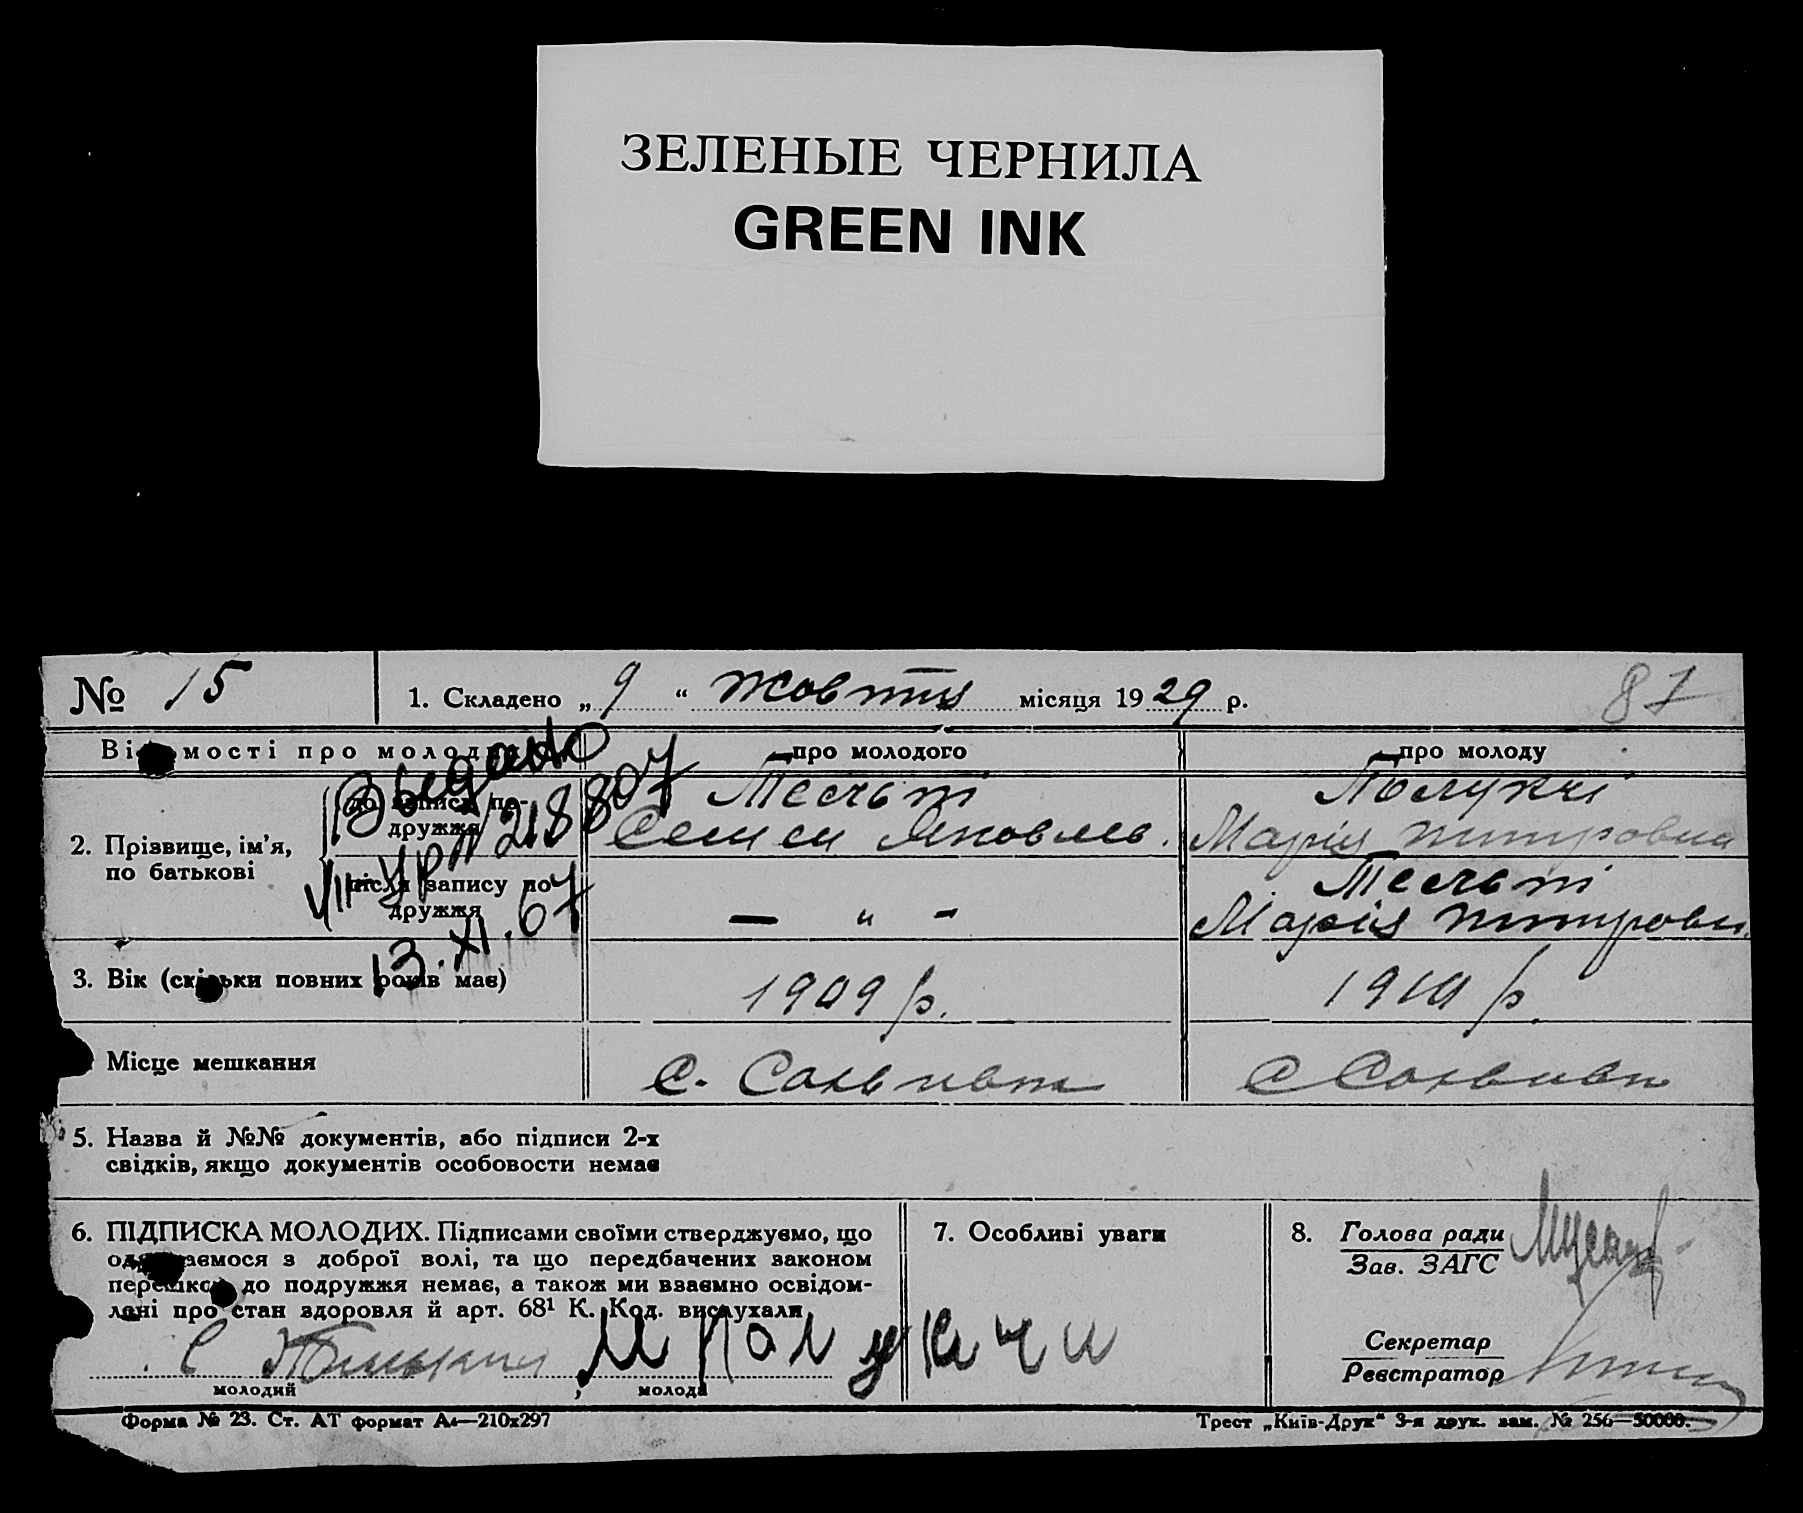 ЗЕЛЕНЫЕ ЧЕРНИЛА
GREEN INK
№ 15
1. Складено „9“ жовтня місяця 1929 р.
87
Відомості про молодих
про молодого
про молоду
2. Прізвище, ім'я, по батькові
до запису по-
дружжя
Семен Яковлев.
Марія
після запису по
дружжя
— " —
Марія
Выдано
VII-УР № 218807
13.XI.67
3. Вік (скільки повних років має)
1909 р.
1910 р.
Місце мешкання
с.
с
5. Назва й №№ документів, або підписи 2-х
свідків, якщо документів особовости немає
6. ПІДПИСКА МОЛОДИХ. Підписами своїми стверджуємо, що
одружаємося з доброї волі, та що передбачених законом
перешкод до подружжя немає, а також ми взаємно освідом-
лені про стан здоровля й арт. 68¹ К. Код. вислухали
С
М Полукичи
молодий
молода
7. Особливі уваги
8. Голова ради
Зав. ЗАГС
Секретар
Реєстратор
Форма № 23. Ст. АТ формат А4—210х297
Трест „Київ-Друк“ 3-я друк. зам. № 256—50000.